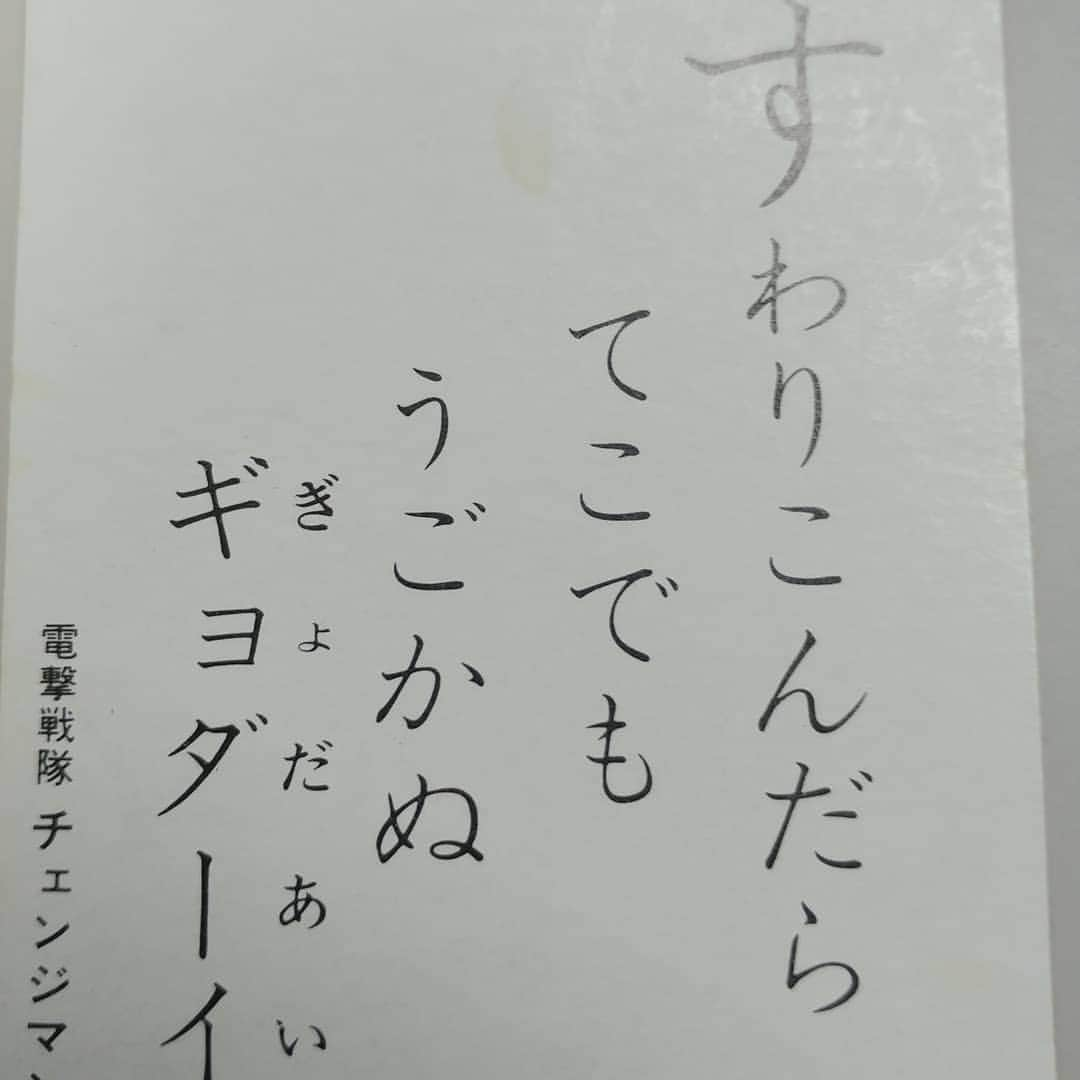 すわりこんだら
てこでも
うごかぬ
ぎょだあい
ギヨダーイ
電撃戦隊チェンジマン